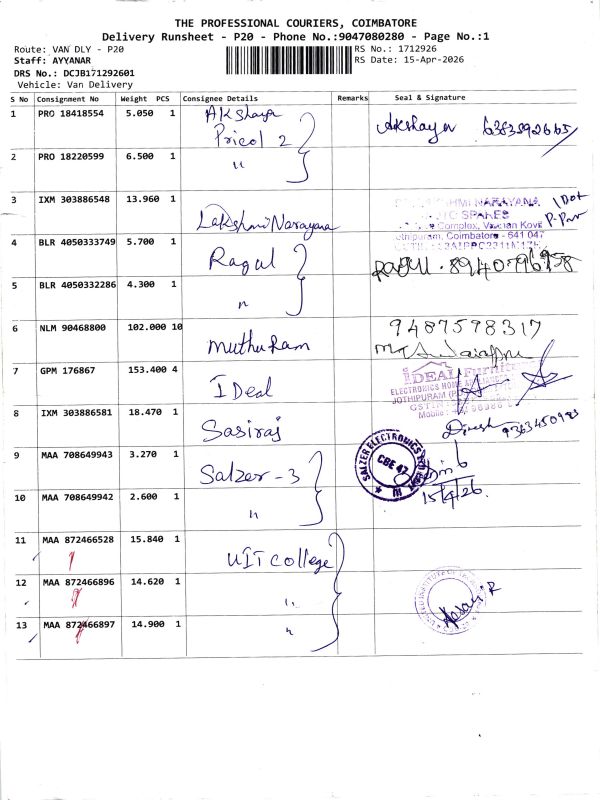 THE PROFESSIONAL COURIERS, COIMBATORE
Delivery Runsheet - P20 - Phone No.:9047080280 - Page No.:1
Route: VAN DLY - P20 RS No.: 1712926
Staff: AYYANAR RS Date: 15-Apr-2026
DRS No.: DCJB171292601
Vehicle: Van Delivery
S No Consignment No Weight PCS Consignee Details Remarks Seal & Signature
1 PRO 18418554 5.050 1 Akshaya Pricol 2 Akshaya 6383592665
2 PRO 18220599 6.500 1 "
3 IXM 303886548 13.960 1 Lakshmi Narayana NARAYANA 1 Dot
SPARES
Complex,
Coimbatore - 641 047
4 BLR 4050333749 5.700 1 Ragul Ragul . 8940796958
5 BLR 4050332286 4.300 1 "
6 NLM 90468800 102.000 10 Muthu Ram 9487598317
7 GPM 176867 153.400 4 IDeal IDEAL
ELECTRONICS HOME
JOTHIPURAM
GSTIN
Mobile
8 IXM 303886581 18.470 1 Sasiraj Dinesh 9363450983
9 MAA 708649943 3.270 1 Salzer - 3 SALZER ELECTRONICS CBE 47 III
10 MAA 708649942 2.600 1 " 15/4/26.
11 MAA 872466528 15.840 1 UIT College
12 MAA 872466896 14.620 1 "
13 MAA 872466897 14.900 1 "